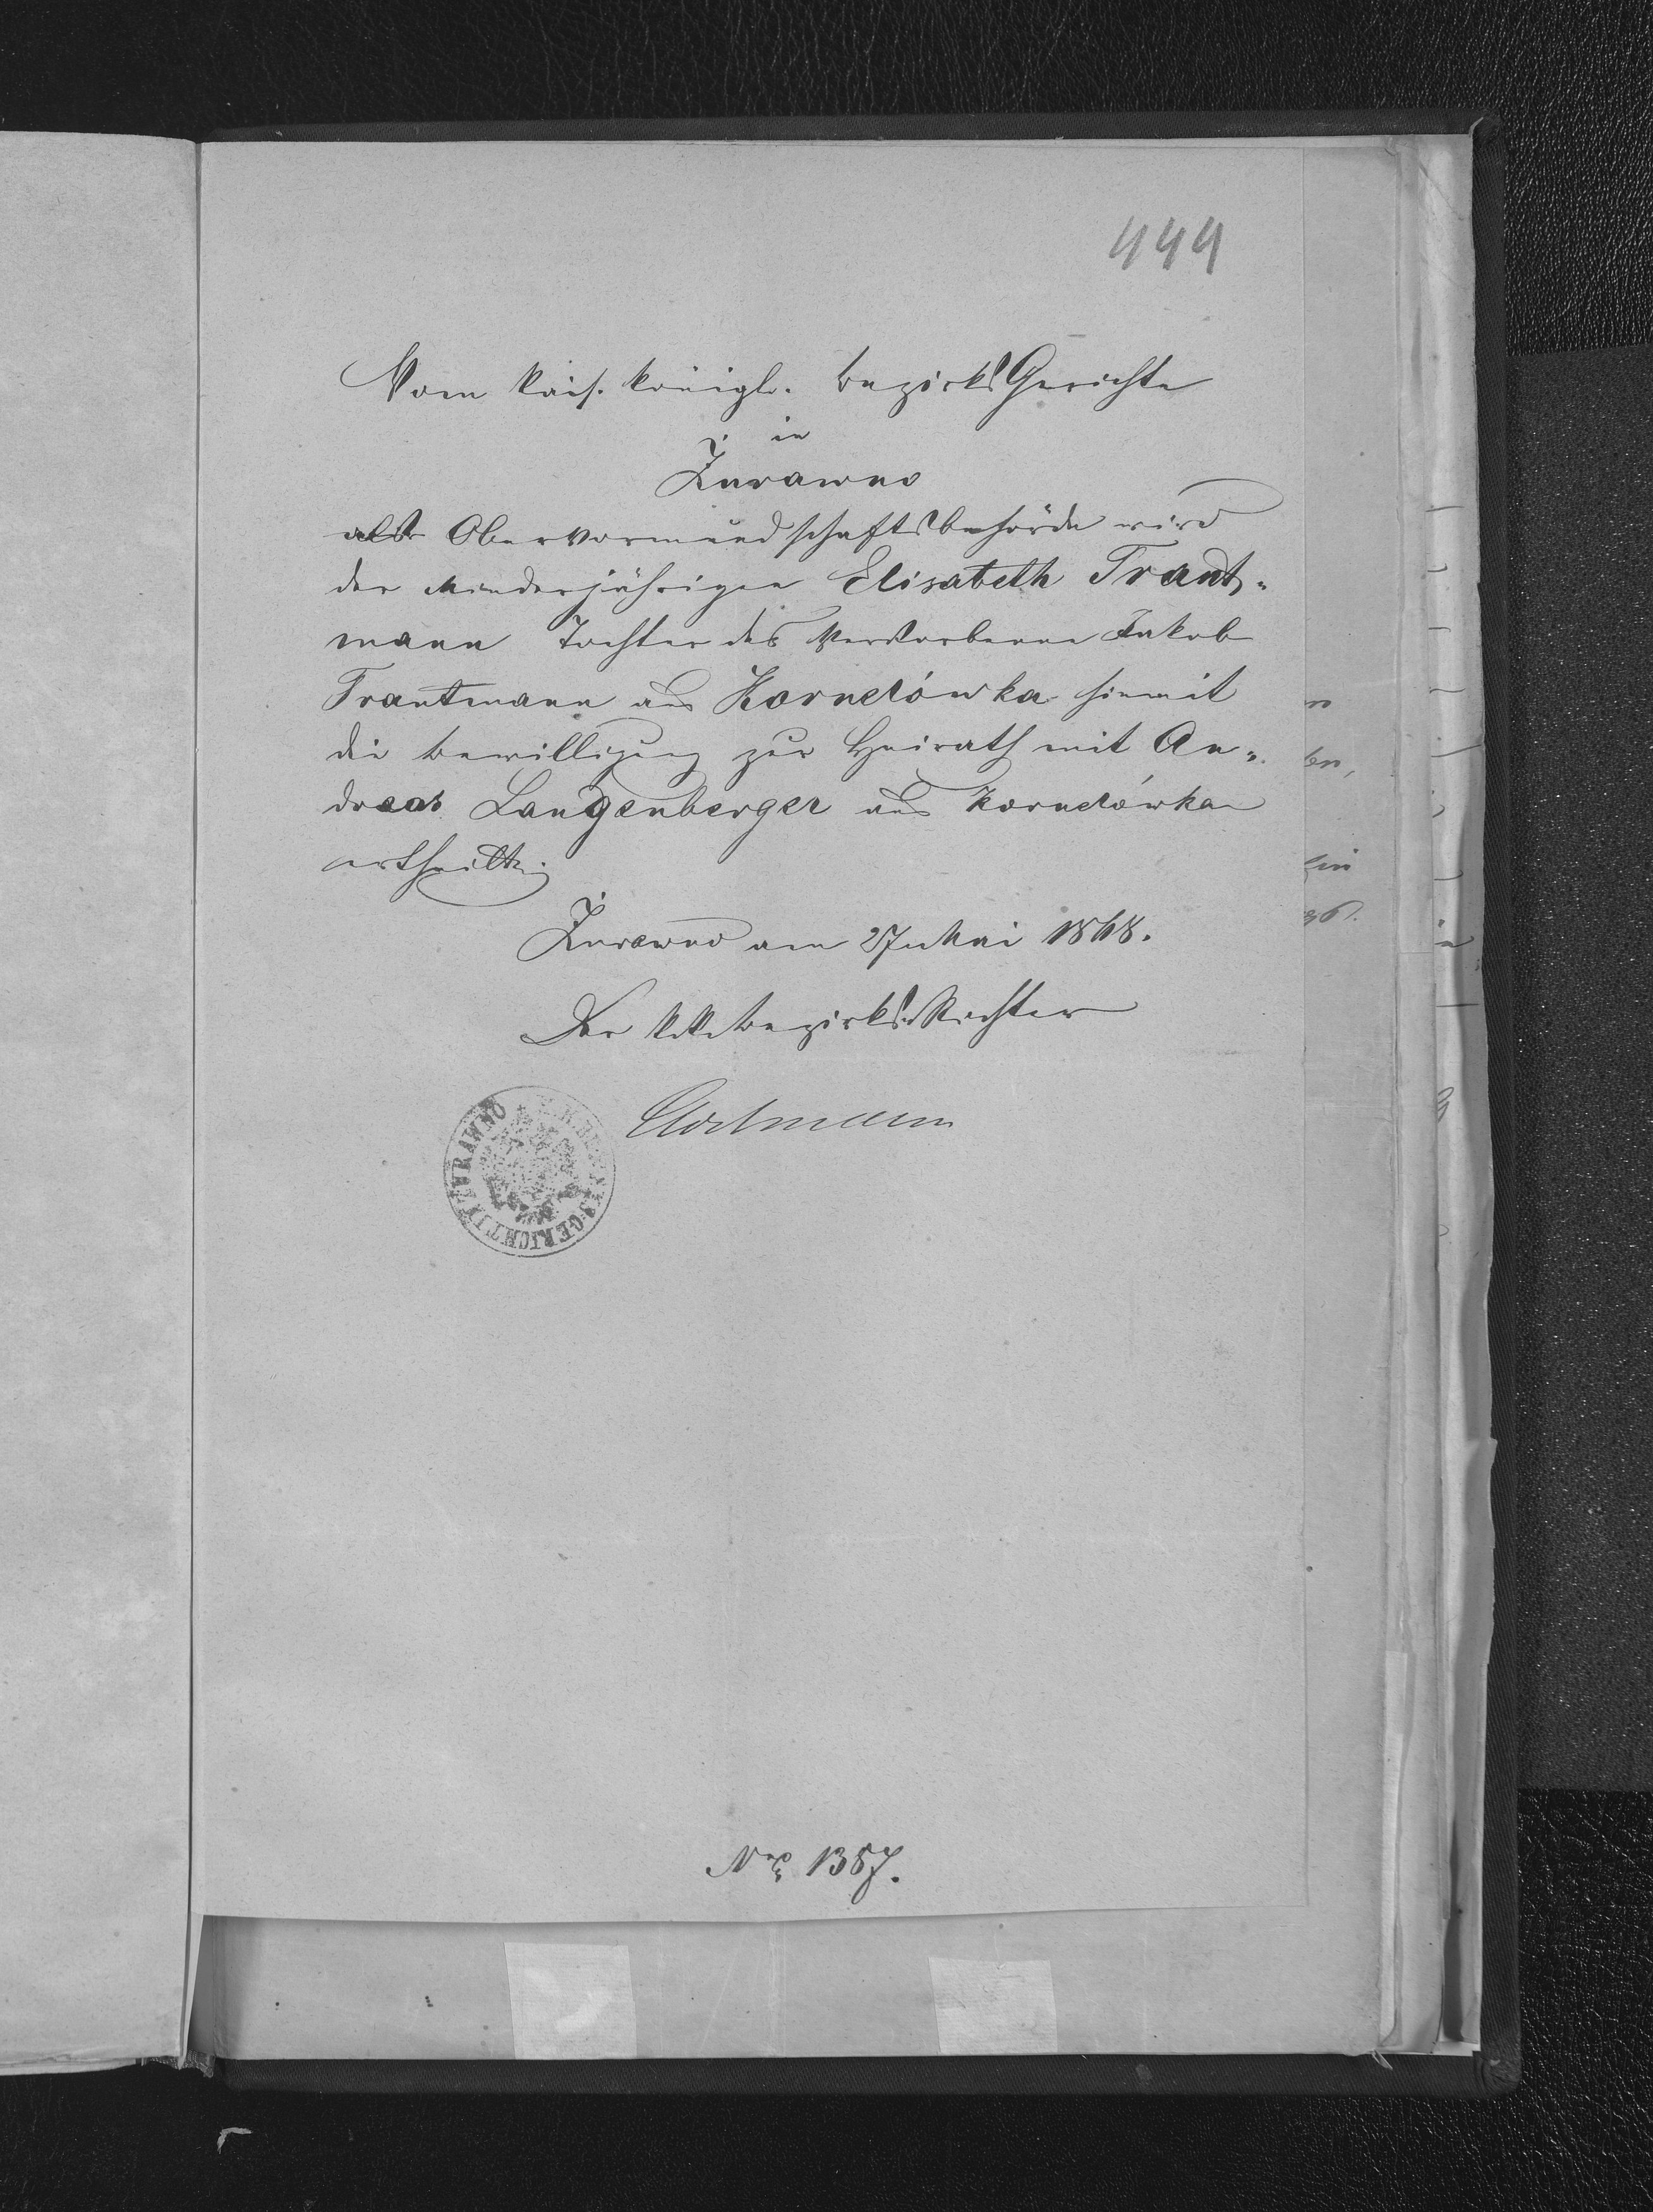 444
Vom kais. königl. Bezirks Gerichte
in
Żurawno
als Obervormundschaftsbehörde wird
der Minderjährigen Elisabeth Traut-
mann Tochter des Verstorbenen Jakob
Trautmann aus Kornelówka hiemit
die Bewilligung zur Heirath mit An-
dreas Langenberger aus Kornelówka
ertheilt.
Żurawno am 27 Mai 1868.
Der k.k. Bezirks Richter
K.K. BEZIRKS-GERICHT IN ŻURAWNO
Nro 1357.